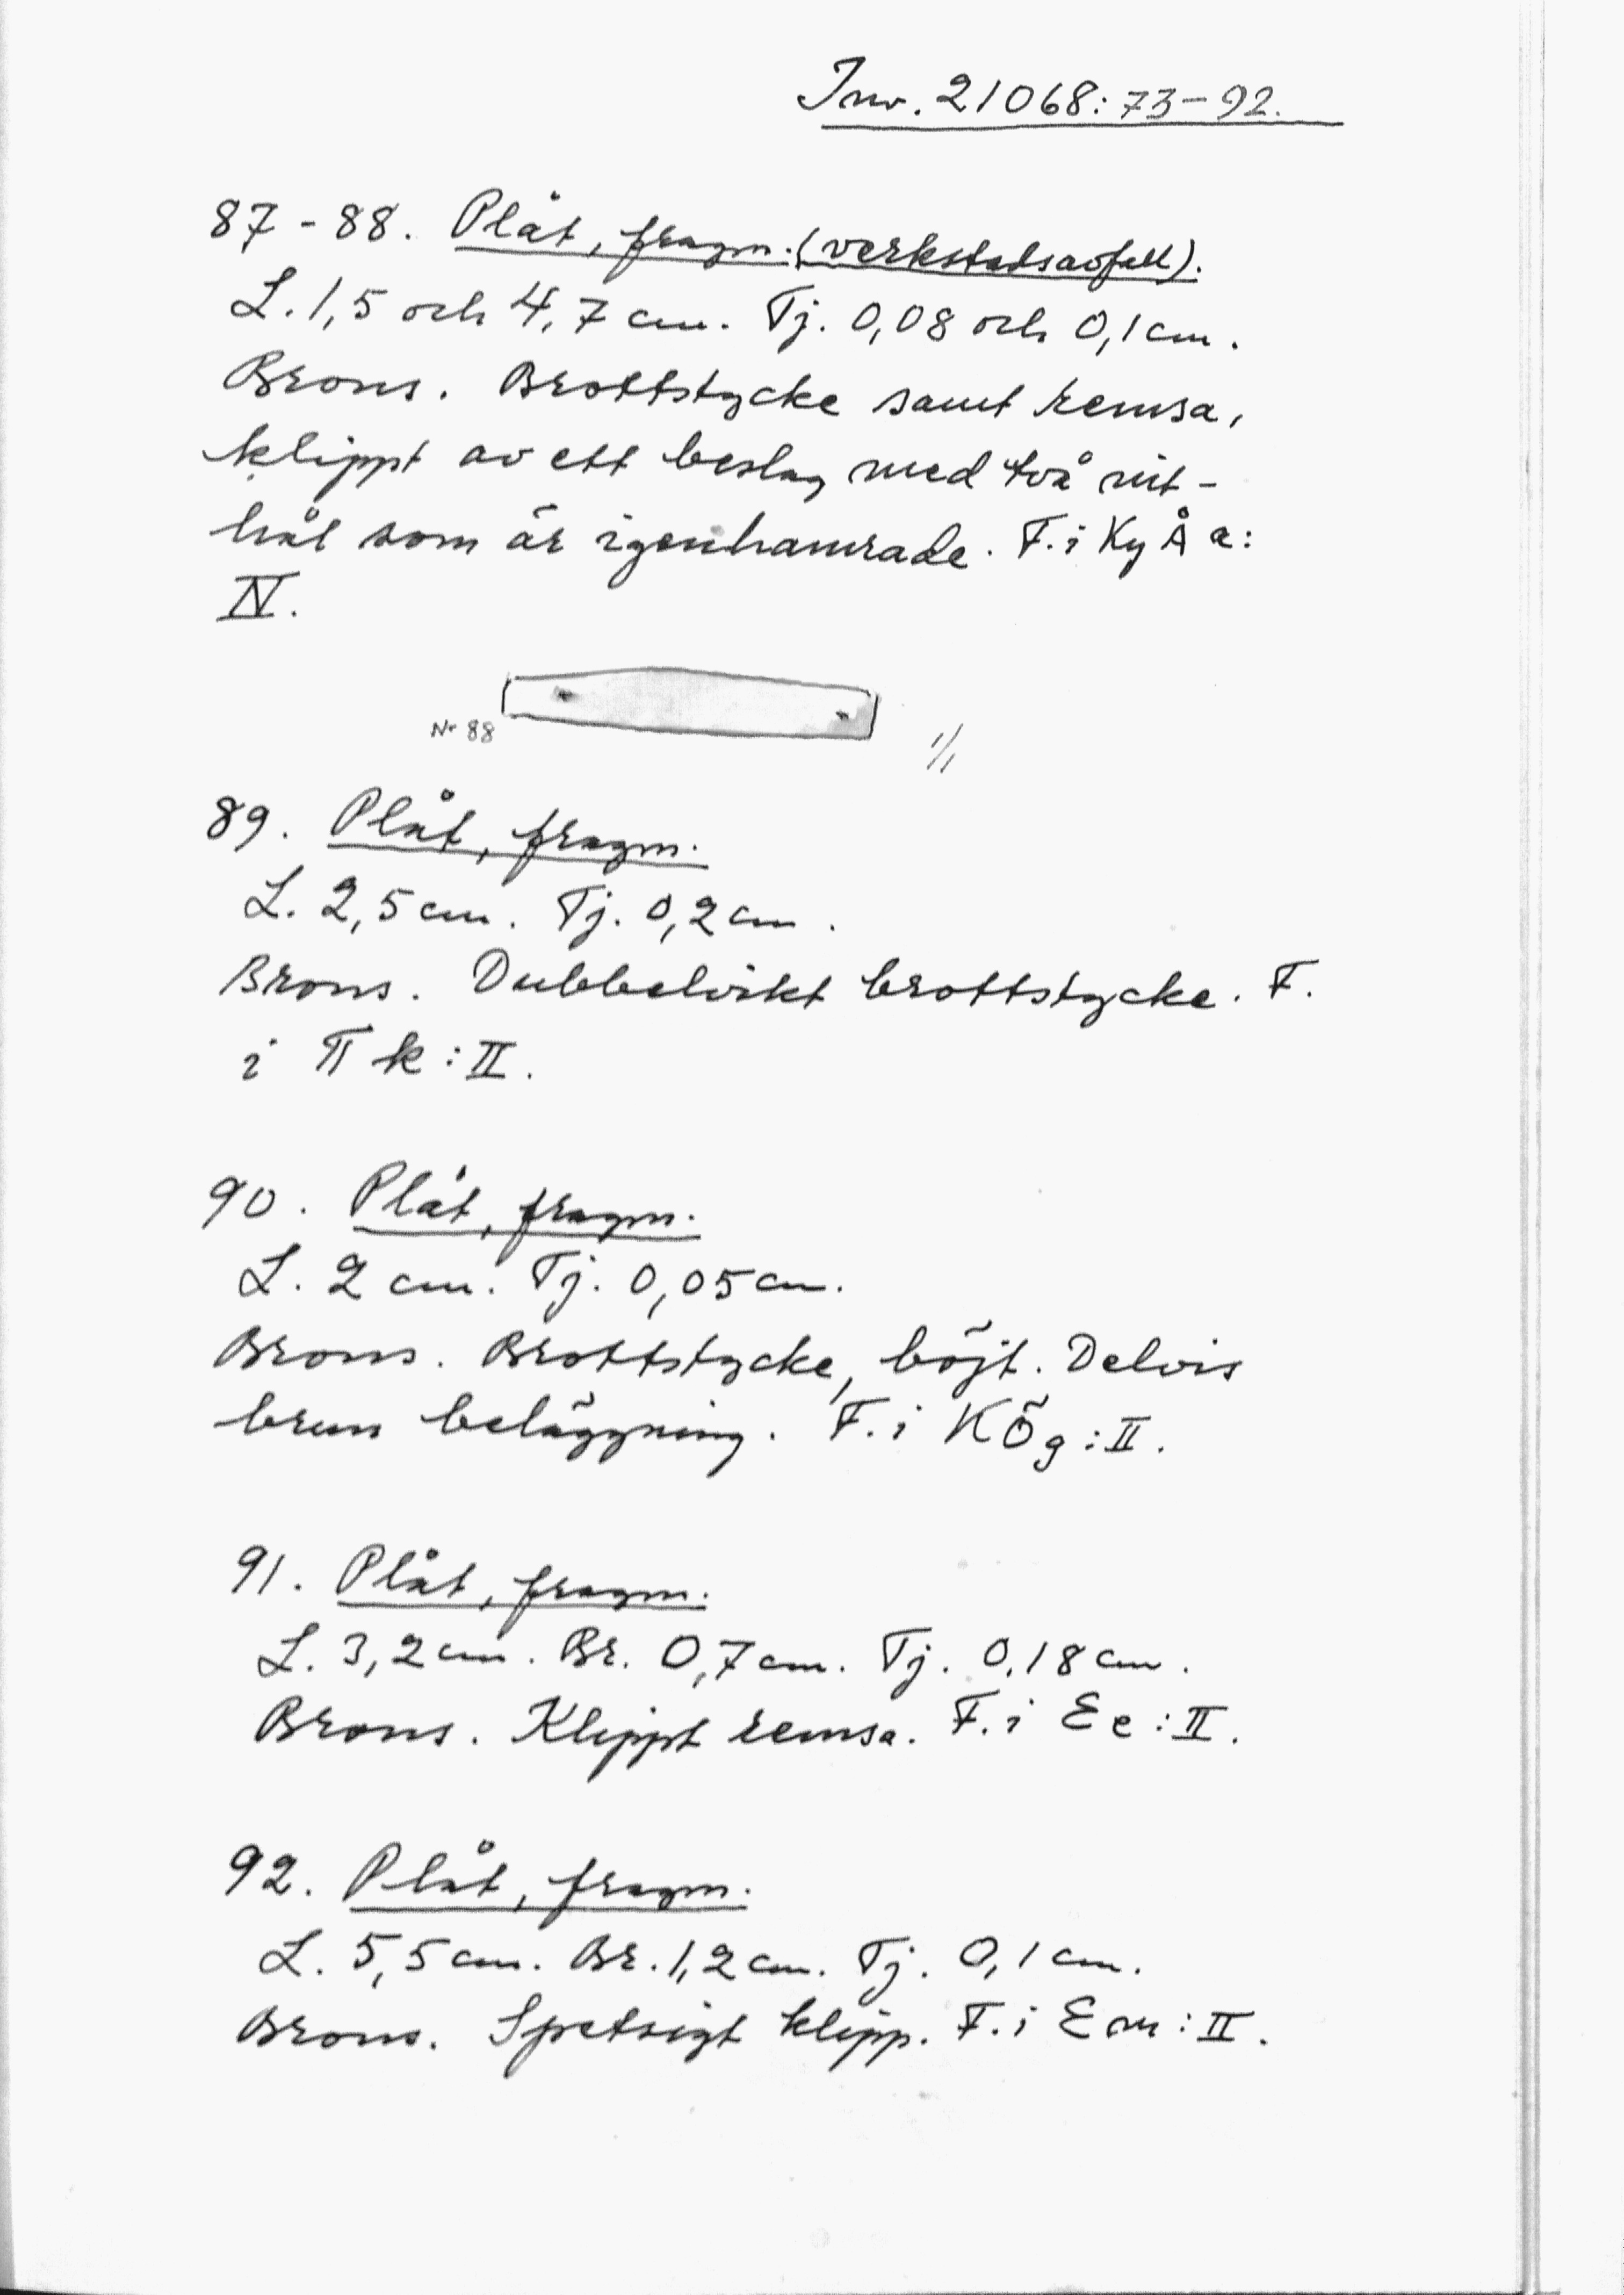 Inv. 21068:73-92.
87-88. Plåt, fragm. (verkstadsavfall).
L. 1,5 och 4,7 cm. Tj. 0,08 och 0,1 cm.
Brons. Brottstycke samt remsa,
klippt av ett beslag med två nit-
hål som är igenhamrade. F. i Ky Å a:
IV.
Nr 88
1/1
89. Plåt, fragm.
L. 2,5 cm. Tj. 0,2 cm.
Brons. Dubbelvikt brottstycke. F.
i Π k:II.
90. Plåt, fragm.
L. 2 cm. Tj. 0,05 cm.
Brons. Brottstycke, böjt. Delvis
brun beläggning. F. i KÖg:II.
91. Plåt, fragm.
L. 3,2 cm. Br. 0,7 cm. Tj. 0,18 cm.
Brons. Klippt remsa. F. i Ee:II.
92. Plåt, fragm.
L. 5,5 cm. Br. 1,2 cm. Tj. 0,1 cm.
Brons. Spetsigt klipp. F. i Em:II.